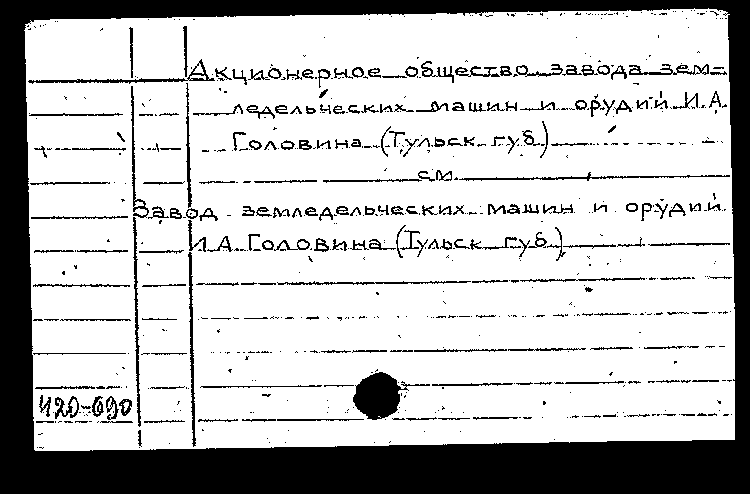 Акционерное общество завода зем-
ледельческих машин и орудий И.А.
Головина (Тульск. губ)
см.
Завод земледельческих машин и орудий
И.А. Головина (Тульск. губ)
420-690